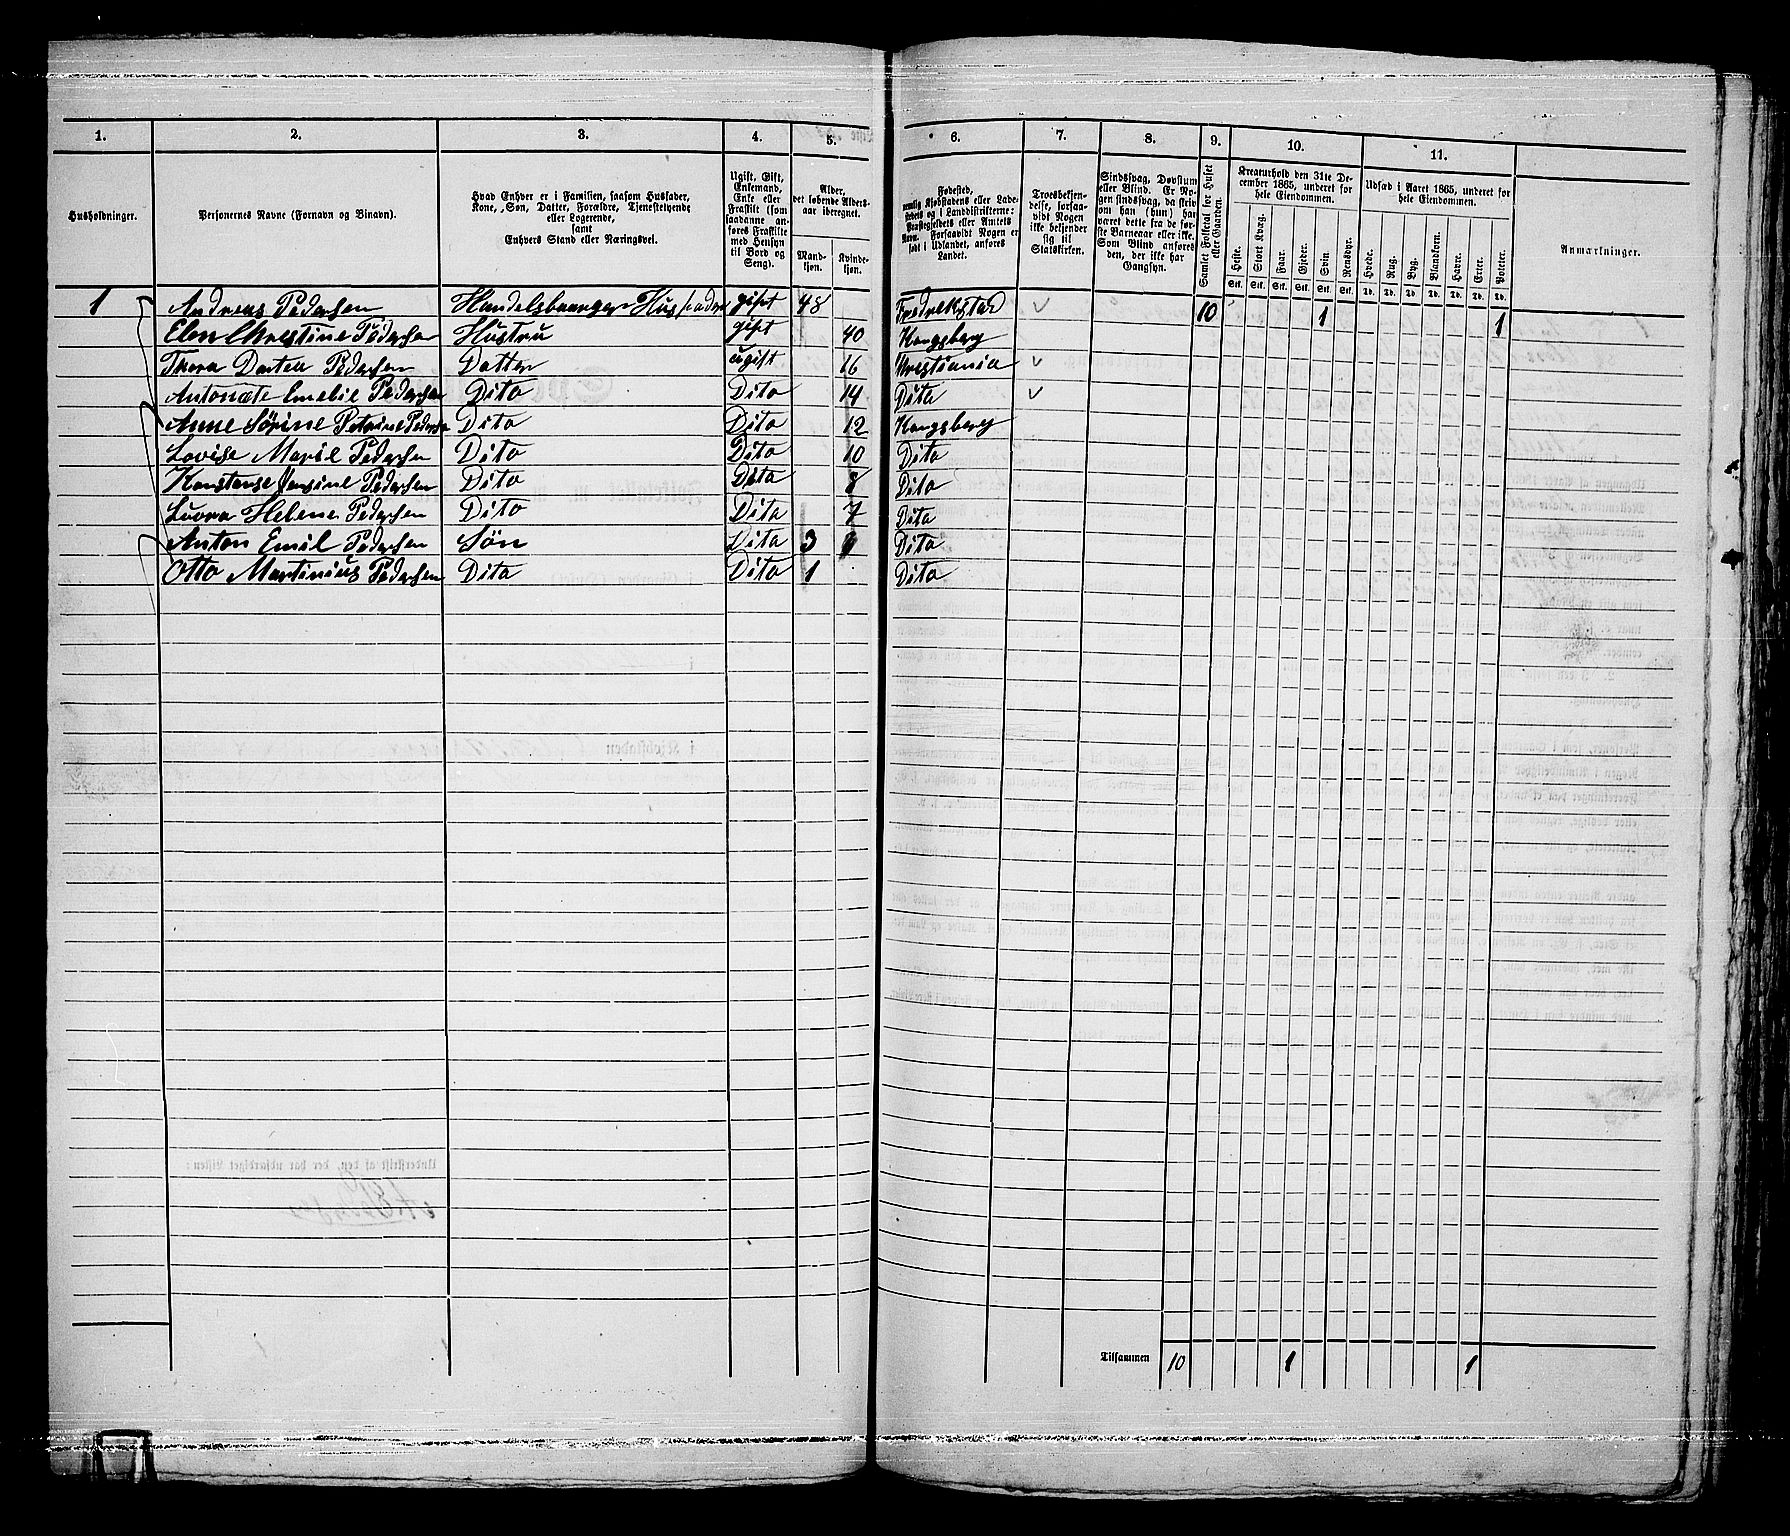 1. 2. 3. 4. 5. 6. 7. 8. 9. 10. 11.
Husholdninger.
Personernes Navne (Fornavn og Binavn).
Hvad Enhver er i Familien, saasom Husfader,
Kone, Søn, Datter, Forældre, Tjenestetyende
eller Logerende,
samt
Enhvers Stand eller Næringsvei.
Ugift, Gift,
Enkemand,
Enke eller
Fraskilt (som
saadanne an-
føres Fraskilte
med Hensyn
til Bord og
Seng).
Alder,
det løbende Alders-
aar iberegnet.
Mand-
kjøn.
Kvinde-
kjøn.
Fødested,
nemlig Kjøbstadens eller Lade-
stedets og i Landdistrikterne:
Præstegjældets eller Amtets
Navn. Forsaavidt Nogen er
født i Udlandet, anføres
Landet.
Troesbekjen-
delse, forsaa-
vidt Nogen
ikke bekjender
sig til
Statskirken.
Sindssvag, Døvstum
eller Blind. Er No-
gen sindssvag, da skriv
om han (hun) har
været dette fra de før-
ste Barneaar eller ikke.
Som Blind anføres
den, der ikke har
Gangsyn.
Samlet Folketal for Huset
eller Gaarden.
Kreaturhold den 31te De-
cember 1865, underet for
hele Eiendommen.
Heste. Stort Kvæg. Faar. Gjeder. Svin. Rensdyr.
Stk. Stk. Stk. Stk. Stk. Stk.
Udsæd i Aaret 1865, underet for
hele Eiendommen.
Hvede. Rug. Byg. Blandkorn. Havre. Erter. Poteter.
Td. Td. Td. Td. Td. Td. Td.
Anmærkninger.
1 Andreas Pedersen Handelsbaarger Husfader gift 48 Fredrekstad 10 1
Elen Chrestine Pedersen Hustru gift 40 Kongsberg 1
Thora Dortea Pedersen Datter ugift 16 Kristiania
Antonæte Emelie Pedersen Dito Dito 14 Dito
Anne Sørine Petrine Pedersen Dito Dito 12 Kongsberg
Lovise Marie Pedersen Dito Dito 10 Dito
Konstanse Jensine Pedersen Dito Dito 8 Dito
Luora Helene Pedersen Dito Dito 7 Dito
Anton Emil Pedersen Søn Dito 3 Dito
Otto Martinius Pedersen Dito Dito 1 Dito
Tilsammen 10 1 1